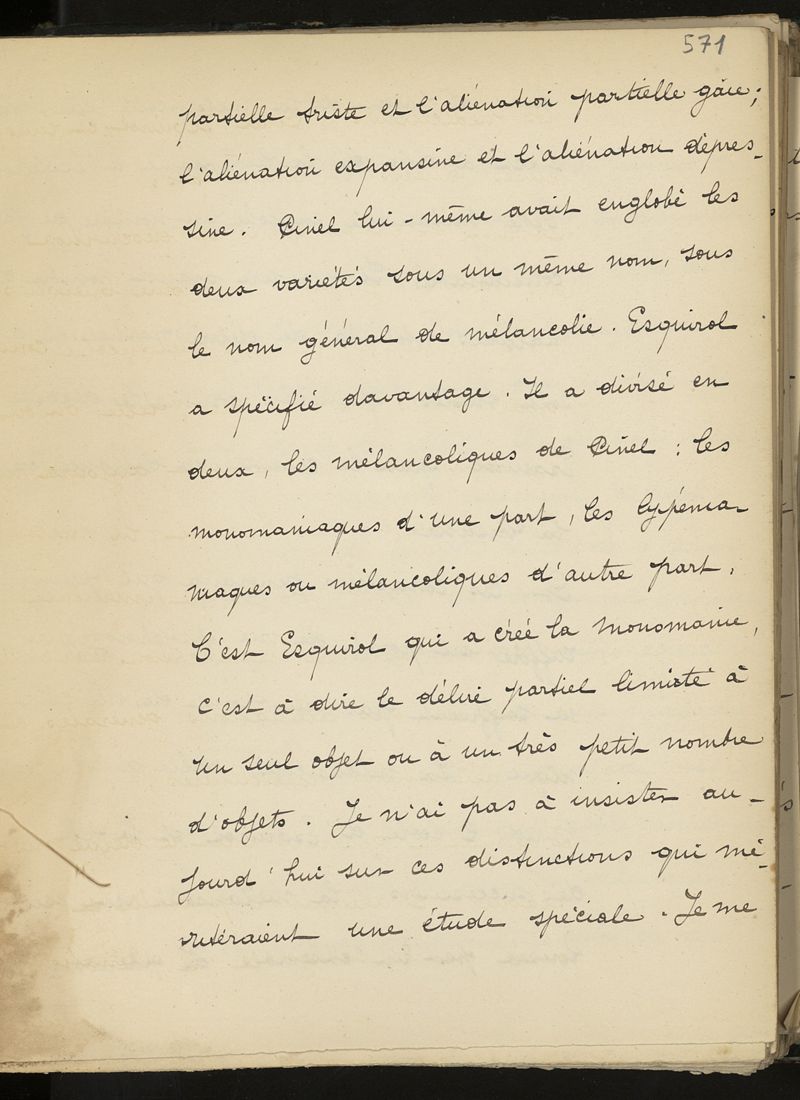 571
partielle triste et l'aliénation partielle gaie;
l'aliénation expansive et l'aliénation dépres-
sive. Pinel lui-même avait englobé les
deux variétés sous un même nom, sous
le nom général de mélancolie. Esquirol
a spécifié davantage. Il a divisé en
deux, les mélancoliques de Pinel : les
monomaniaques d'une part, les lypéma-
niaques ou mélancoliques d'autre part.
C'est Esquirol qui a créé la monomanie,
c'est à dire le délire partiel limité à
un seul objet ou à un très petit nombre
d'objets. Je n'ai pas à insister au-
jourd'hui sur ces distinctions qui mé-
riteraient une étude spéciale. Je me